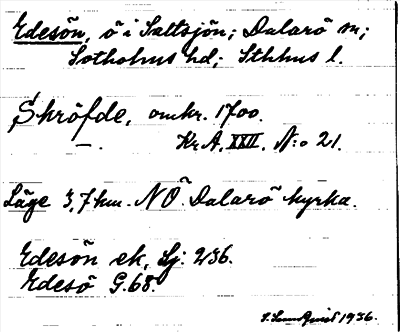 Edesön, ö i Saltsjön; Dalarö sn;
Sotholms hd; Sthlms l.
Skröfde, omkr. 1700.
—. Kr.A. XXII. N:o 21.
Läge 3,7 km. NÖ. Dalarö kyrka.
Edesön ek, Lj: 236.
Edesö G.68.
1936.